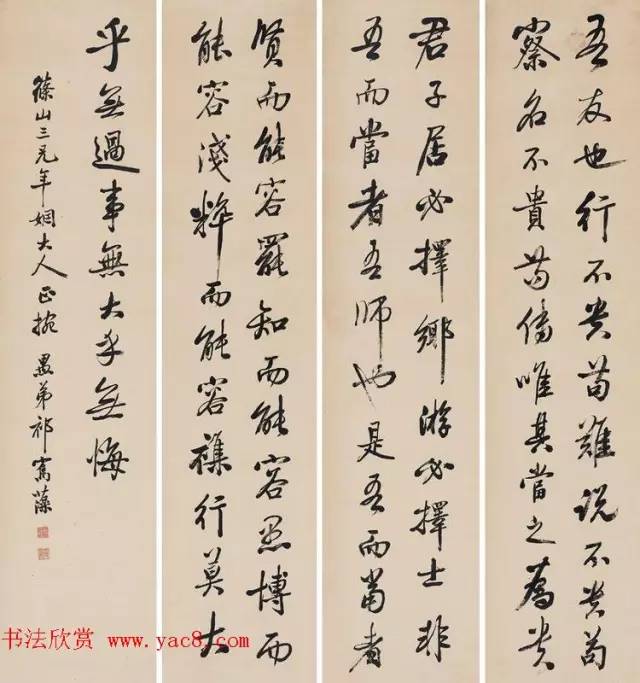 吾友也行不贵苟難说不贵苟
察名不貴苟傳唯其當之為贵
君子居必擇鄉游必擇士非
吾而當者吾师也是吾而當者
贤而能容罷知而能容愚博而
能容淺粹而能容襍行莫大
乎無過事無大乎無悔
篠山三兄年姻大人正捥 愚弟祁寯藻
书法欣赏 www.yac8.com